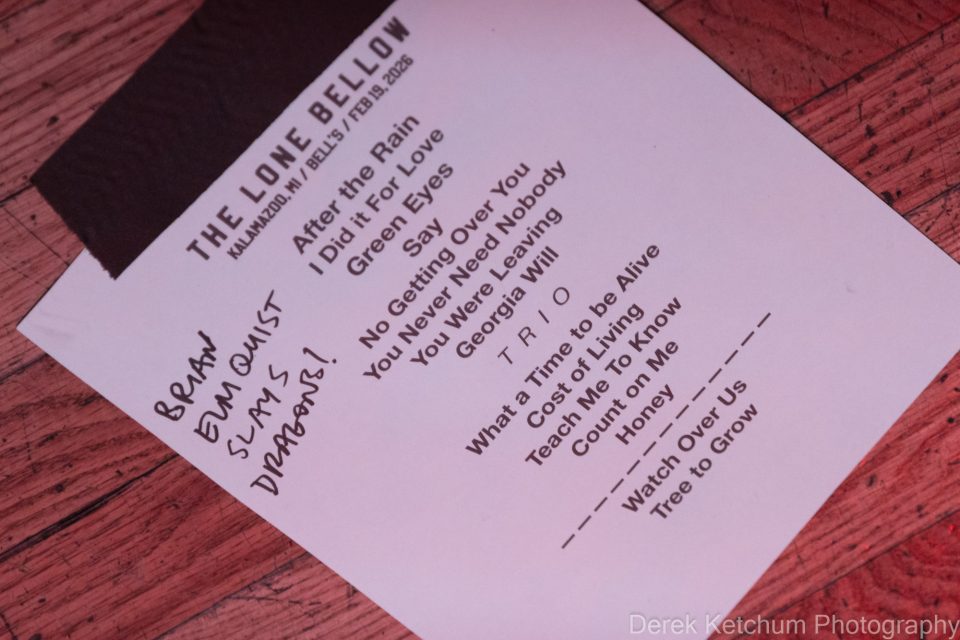 THE LONE BELLOW
KALAMAZOO, MI / BELL'S / FEB 19, 2026
After the Rain
I Did it For Love
Green Eyes
Say
No Getting Over You
You Never Need Nobody
You Were Leaving
Georgia Will
TRIO
What a Time to be Alive
Cost of Living
Teach Me To Know
Count on Me
Honey
Watch Over Us
Tree to Grow
BRIAN
ELMQUIST
SLAYS
DRAGONS!
Derek Ketchum Photography